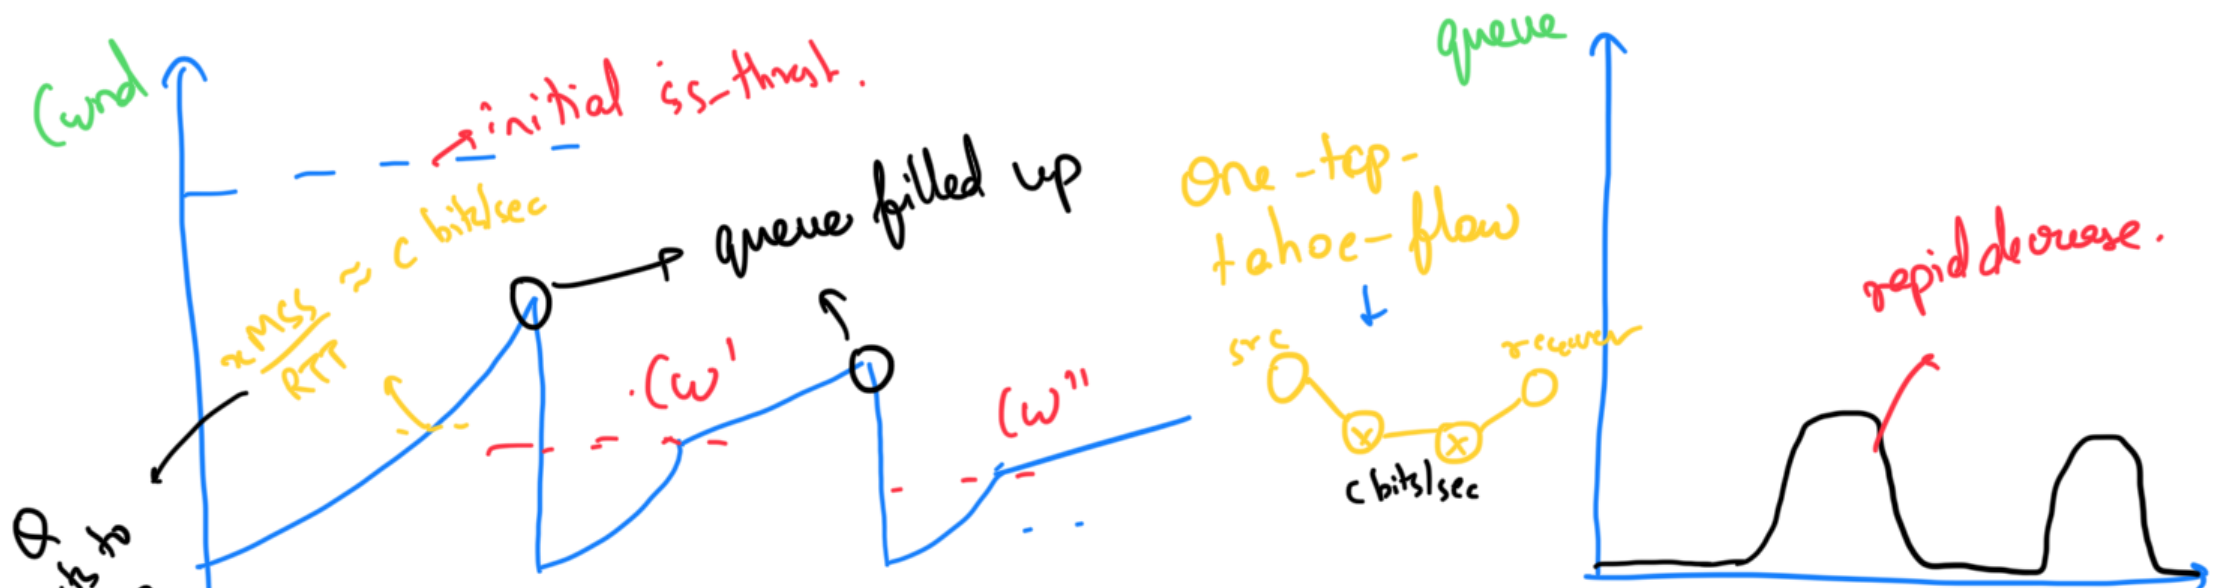 Cwnd
initial ss-thrst.
x MSS / RTT ≈ c bits/sec
queue filled up
(w'
(w"
Q
to
one-tcp-
tahoe-flow
src
receiver
x
x
c bits/sec
queue
rapid decrease.